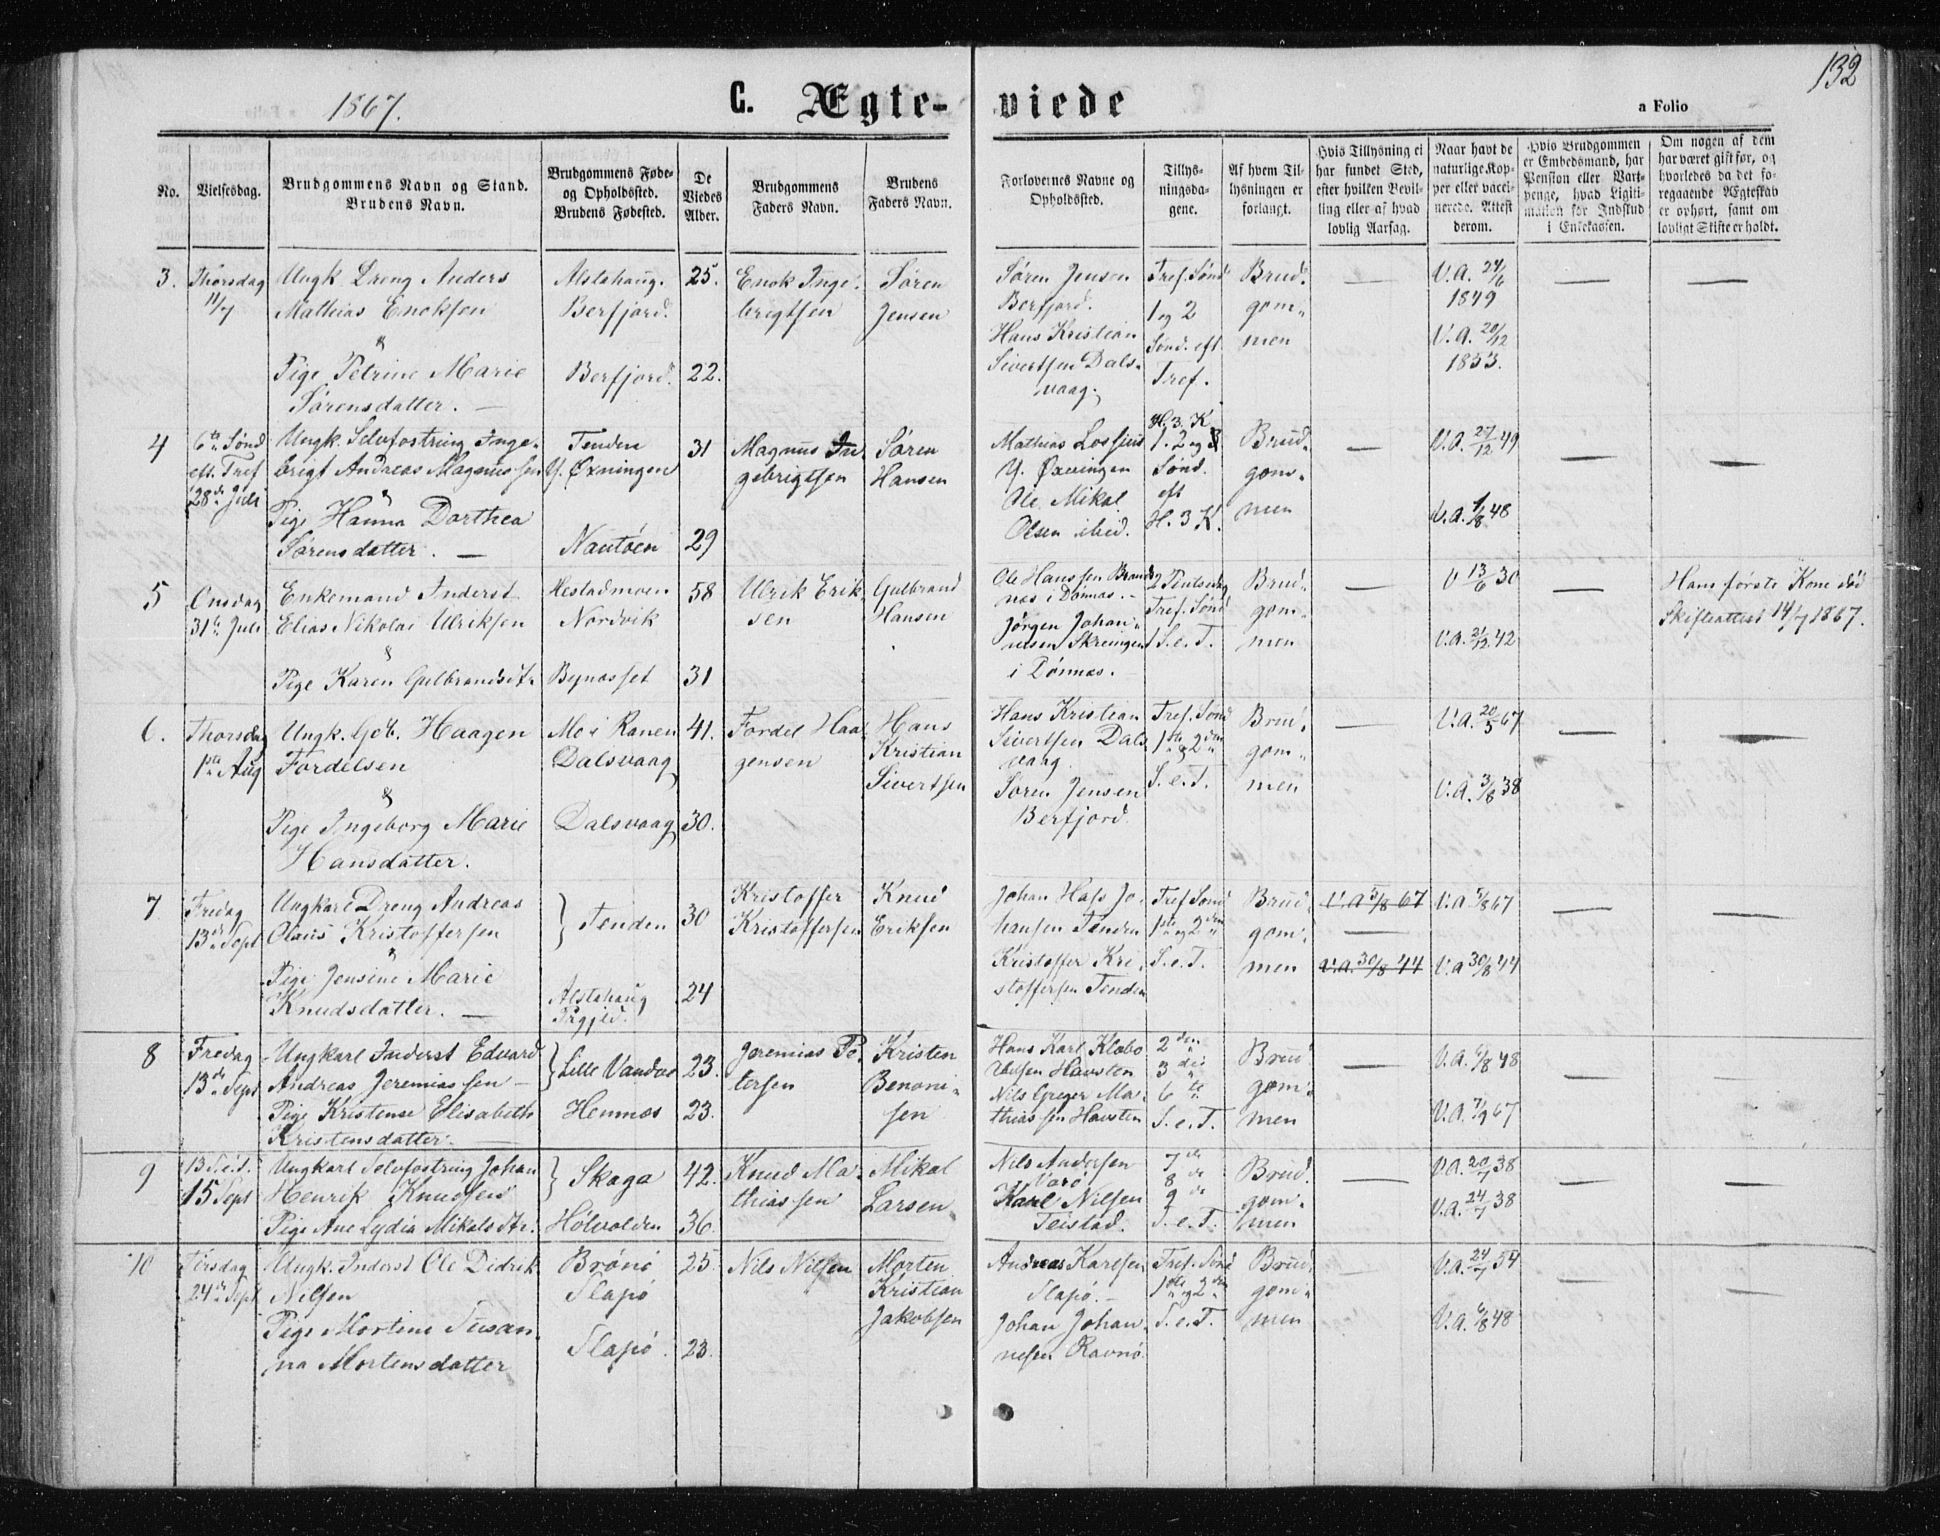 1867.
C. Ægte-
viede
a Folio
132
No.
Vielsesdag.
Brudgommens Navn og Stand.
Brudens Navn.
Brudgommens Føde-
og Opholdssted.
Brudens Fødested.
De
Viedes
Alder.
Brudgommens
Faders Navn.
Brudens
Faders Navn.
Forlovernes Navne og
Opholdssted.
Tillys-
ningsda-
gene.
Af hvem Til-
lysningen er
forlangt.
Hvis Tillysning ei
har fundet Sted,
efter hvilken Bevil-
ling eller af hvad
lovlig Aarsag.
Naar havt de
naturlige Kop-
per eller vacci-
nerede. Attest
derom.
Hvis Brudgommen
er Embedsmand, har
Pension eller Vart-
penge, hvad Ligiti-
mation for Indskud
i Enkekassen.
Om nogen af dem
har været gift før, og
hvorledes da det fo-
regaaende Ægteskab
er ophørt, samt om
lovligt Skifte er holdt.
3.
Thorsdag
11/7
Ungk. Dreng Anders
Mathias Enoksen
&
Pige Petrine Marie
Sørensdatter. —
Alstahaug.
Berfjord.
Berfjord.
25.
22.
Enok Inge-
brigtsen
Søren
Jensen
Søren Jensen
Berfjord.
Hans Kristian
Sivertsen Dals-
vaag.
Tref. Sønd
1 og 2
Sønd. eft
Tref.
Brud-
gom-
men
—
V.A. 24/6
1849
V.A. 20/12
1853.
—
—
4
6te Sønd
eft. Tref
28de Juli
Ungk. Selvfostring Inge-
brigt Andreas Magnussen
&
Pige Hanna Dorthea
Sørensdatter. —
Tenden
Y. Øxningen
Nautøen
31
29
Magnus In-
gebrigtsen
Søren
Hansen
Mathias Losjius
Y. Øxningen
Ole Mikal
Olsen ibid.
H. 3 K.
1. 2 og 3
Sønd.
eft
H. 3 K.
Brud-
gom-
men
—
V.A. 27/12 49
V.A. 1/8 48
—
—
5
Onsdag
31te Juli
Enkemand Inderst
Elias Nikolai Ulriksen
&
Pige Karen Gulbrandsdt.
Hestadmoen
Nordvik
Bynæsset
58
31
Ulrik Erik-
sen
Gulbrand
Hansen
Ole Hanssen Brands-
næs i Dønnæs. -
Jørgen Johan-
nesen Skeiingen
i Dønnæs.
2 Pintsedag
Tref. Sønd
1 S. e. T.
Brud-
gom-
men
—
V 13/6 30
V.A. 21/12 42
—
Hans første Kone død
Skifteattest 14/7 1867.
6.
Thorsdag
1ste Aug
Ungk. Gdb. Haagen
Fordelsen
&
Pige Ingeborg Marie
Hansdatter.
Mo i Ranen
Dalsvaag
Dalsvaag
41.
30.
Fordel Haa-
gensen
Hans
Kristian
Sivertsen
Hans Kristian
Sivertsen Dals
vaag
Søren Jensen
Berfjord.
Tref. Sønd
1ste & 2den
S. e. T.
Brud-
gom-
men
—
V.A. 20/5 67
V.A. 3/8 38
—
—
7
Fredag
13de Sept
Ungkarl Dreng Andreas
Olaus Kristoffersen
&
Pige Jensine Marie
Knudsdatter. —
Tenden
Alstahaug
Prgjld.
30
24
Kristoffer
Kristoffersen
Knud
Eriksen
Johan Hass Jo-
hansen Tenden
Kristoffer Kri-
stoffersen Tenden
Tref. Sønd
1ste og 2den
S. e. T.
Brud-
gom-
men
V.A 5/8 67
—
V.A. 30/8 44
V.A 5/8 67
V.A 30/8 44
—
—
8
Fredag
13de Sept
Ungkarl Inderst Edvard
Andreas Jeremiassen —
Pige Kristense Elisabeth
Kristensdatter. —
Lille Vandved
Hemnæs
23.
23.
Jeremias Pe-
tersen
Kristen
Benoni-
sen
Hans Karl Klæbo
Havsten
Nils Greger Ma-
thiassen Havsten
2den
3die
6te
S. e. T.
Brud-
gom-
men
—
V.A. 6/8 48
V.A. 7/9 67
—
—
9
13 S. e. T.
15 Sept
Ungkarl Selvfostring Johan
Henrik Knudsen
Pige Ane Lydia Mikalsdtr.
Skaga
Hølvolden
42.
36.
Knud Ma-
thiassen
Mikal
Larsen
Nils Andersen
Varø
Karl Nilsen
Teistad.
7de
8de
9de
S. e. T.
Brud-
gom-
men
—
V.A. 20/7 38
V.A. 24/7 38
—
—
10
Tirsdag
24de Sept
Ungk. Inderst Ole Didrik
Nilsen
Pige Mortine Susan-
na Mortensdatter
Brønø
Slapø
Slapø.
25.
23.
Nils Nilsen
Morten
Kristian
Jakobsen
Andreas Karlsen
Slapø. -
Johan Johan-
nesen Ravnø
Tref. Sønd
1ste og 2den
S. e. T.
Brud-
gom-
men
V.A. 24/7 54
V.A. 6/8 48
—
—